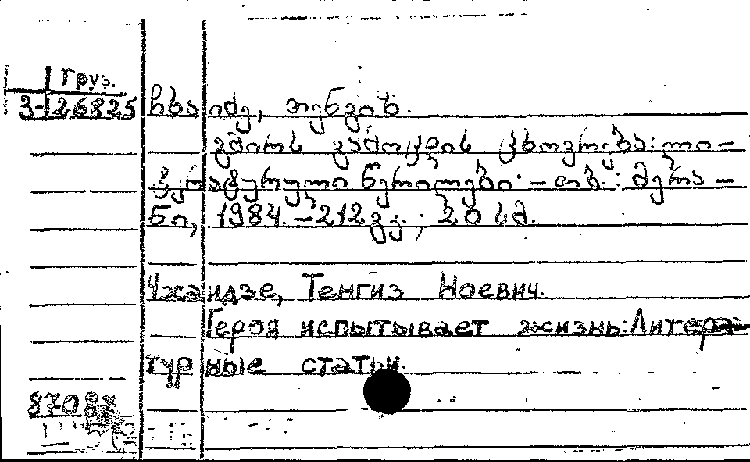 Груз.
3-26825
ჩხაიძე, თენგიზ.
გმირს გამოცდის ცხოვრება: ლი-
ტერატურული წერილები. - თბ.: მერა-
ნი, 1984. - 212გვ.; 20 სმ.
Чхаидзе, Тенгиз Ноевич.
Героя испытывает жизнь: Литера-
турные статьи.